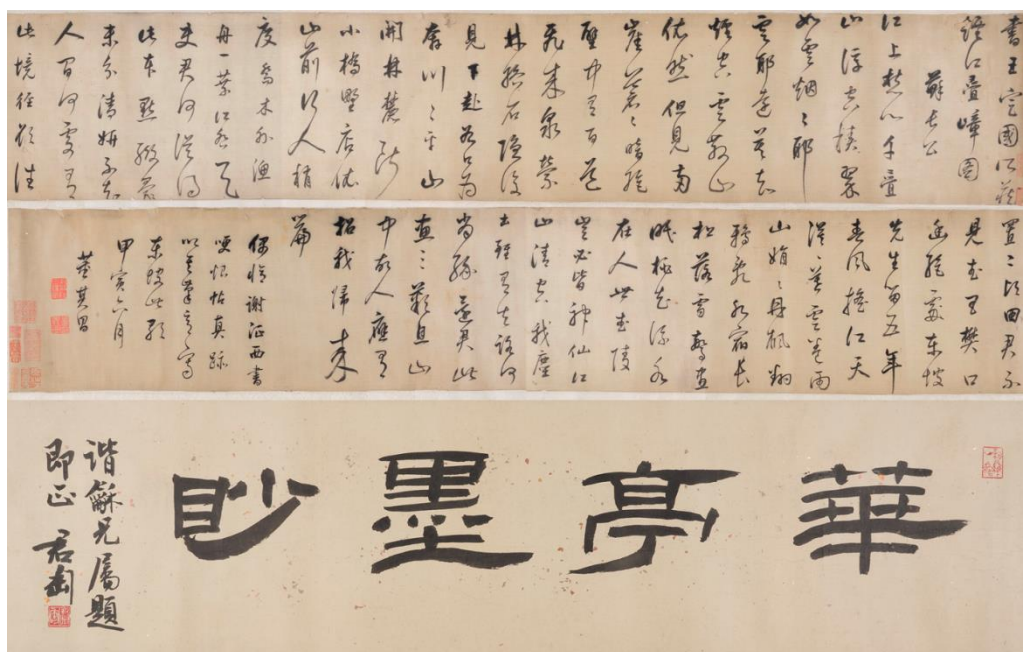 書王定國所藏
煙江疊嶂圖
蘇長公
江上愁心千疊
山浮空積翠
如雲烟山耶
雲耶遠莫知
煙空雲散山
依然但見兩
崖蒼蒼暗絕
中有百道
飛來泉縈
林絡石隱復
見下赴谷口為
奔川川平山
開林麓斷
小橋野店依
山前行人稍
度喬木外漁
舟一葉江吞天
使君何從得
此本點綴毫
末分清妍不知
人間何處有
此境徑欲往
置二頃田君不
見武昌樊口
幽絕處東坡
先生留五年
春風搖江天
漠漠暮雲卷雨
山娟娟丹楓翻
鴉伴水宿長
松落雪驚晝
眠桃花流水
在人世武陵
豈必皆神仙江
山清空我塵
土雖有去路
緣還君此
畫三歎息山
中故人應有
招我歸來
篇
偶臨謝征西書
哽恨帖真跡
以其筆意寫
東坡此歌
甲寅六月
董其昌
華亭墨眇
諧龢兄屬題
即正 君匋